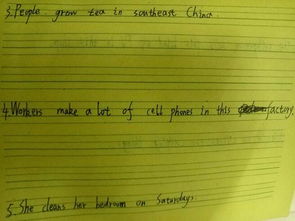 3.People grow tea in southeast China.
4.Workers make a lot of cell phones in this factory.
5.She cleans her bedroom on Saturdays.